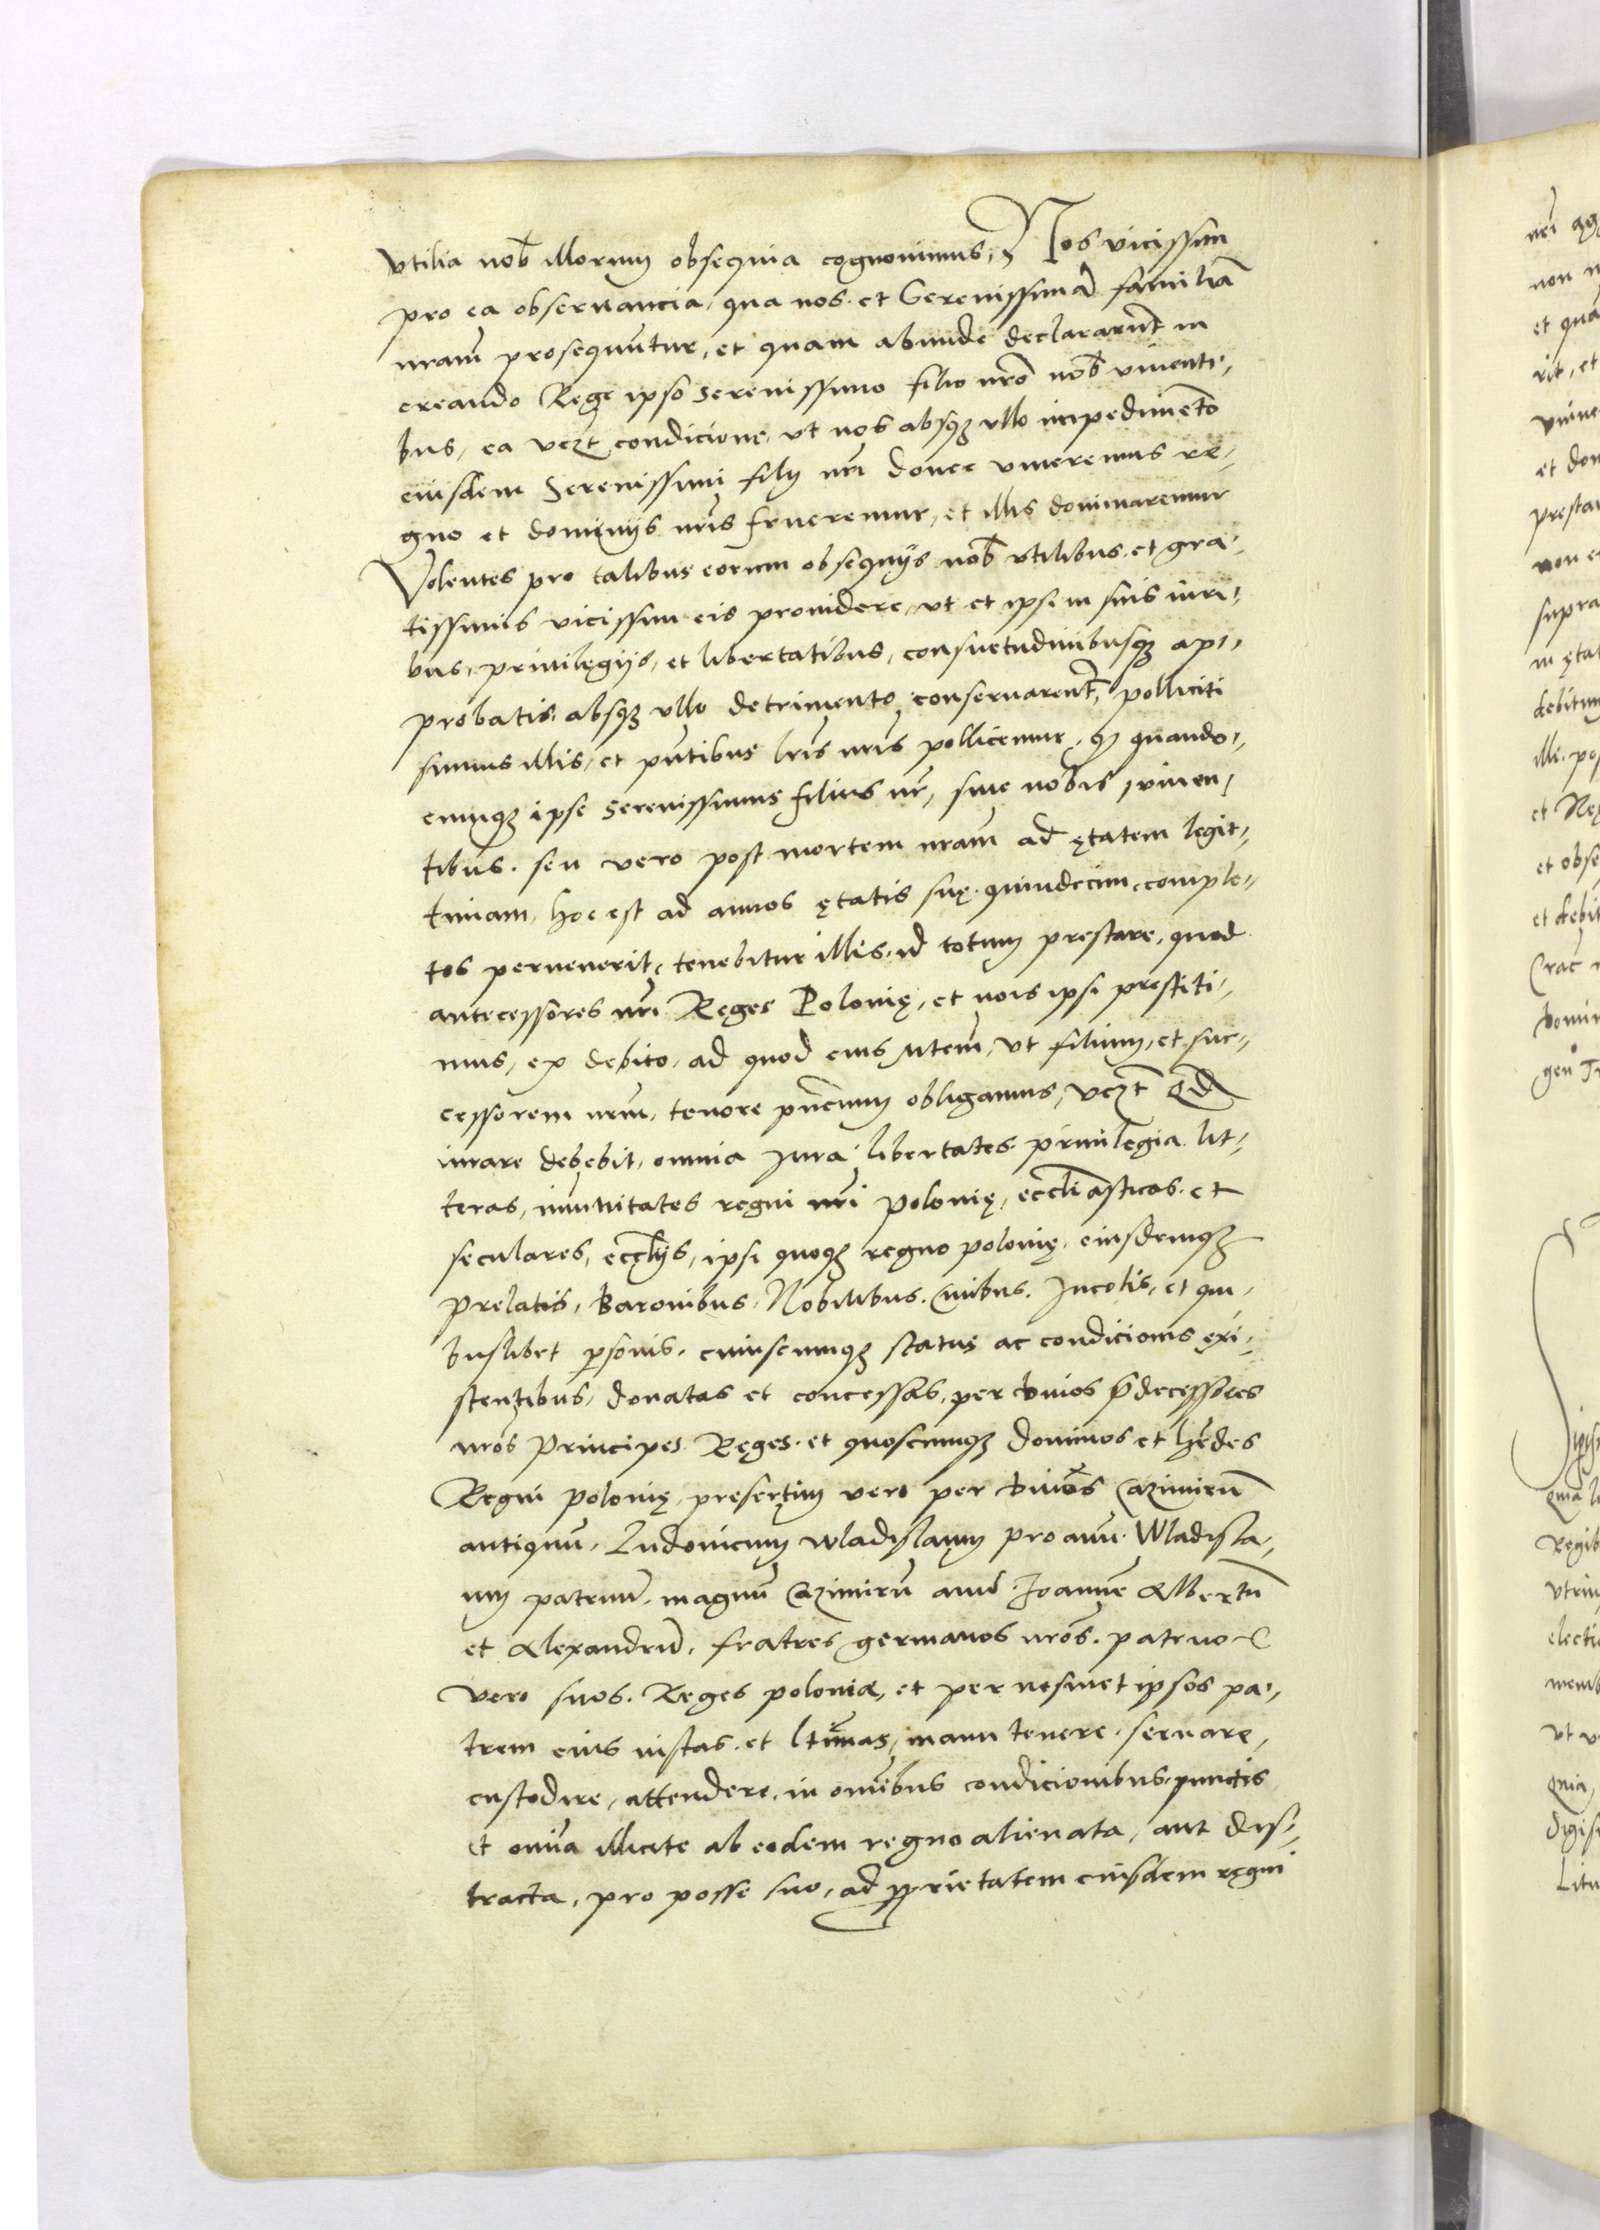 vtilia nob̄ illorum obsequia cognouimus, Nos vicissim
pro ea obseruancia, qua nos et Serenissimā familiā
nram̄ prosequuntur, et quam abunde declararūt in
creando Rege ipso Serenissimo filio nrō nob̄ viuenti-
bus, ea vczt condicione, vt nos absq3 vllo impedimēto
eiusdem Serenissimi filij nrī donec viueremus re-
gno et dominijs nrīs frueremur, et illis dominaremur
Volentes pro talibus eorum obsequijs nob̄ vtilibus et gra-
tissimis vicissim eis prouidere, vt et ipsi in suis iuri-
bus, priuilegijs, et libertatibus, consuetudinibusq3 ap-
probatis absq3 vllo detrimento conseruarent̄, polliciti
sumus illis, et pn̄tibus lrīs nrīs pollicemur, q3 quando-
cunq3 ipse Serenissimus filius nr̄, siue nobis viuen-
tibus, seu vero post mortem nram̄ ad ętatem legit-
timam, hoc est ad annos ętatis suę quindecim comple-
tos peruenerit, tenebitur illis id totum prestare, quod
antecessores nrī Reges Polonię, et nos ipsi prestiti-
mus, ex debito, ad quod eius mtem̄, vt filium, et suc-
cessorem nrm̄, tenore pn̄cium obligamus, vczt qd
iurare debebit, omnia Jura libertates priuilegia lit-
teras, imunitates regni nrī polonię, eccliāsticas et
seculares, ecclijs, ipsi quoq3 regno polonię, eiusdemq3
prelatis, Baronibus, Nobilibus, Ciuibus, Incolis, et qui-
buslibet psonis, cuiuscunq3 status ac condicionis exi-
stentibus, donatas et concessas, per diuos p̄decessores
nrōs Principes Reges, et quoscunq3 dominos et hēdes
Regni polonię, presertim vero per diuos Cazimirū
antiquū, Ludouicum wladislaum proauū, Wladisla-
um patruū, magnū Cazimirū auū, Joannē Albertū
et Alexandrū, fratres germanos nrōs, patruo
vero suos, Reges poloniæ, et per nosmet ipsos pa-
trem eius iustas et ltimas, manu tenere, seruare,
custodire, attendere, in omībus condicionibus, punctis
et omīa illicite ab eodem regno alienata, aut dis-
tracta, pro posse suo, ad pprietatem eiusdem regni